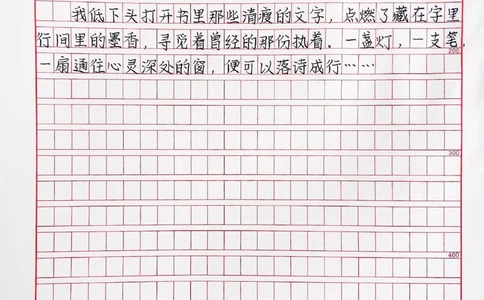 我低下头打开书里那些清瘦的文字，点燃了藏在字里
行间里的墨香，寻觅着曾经的那份执着。一盏灯，一支笔，
200
一扇通往心灵深处的窗，便可以落诗成行……
300
400